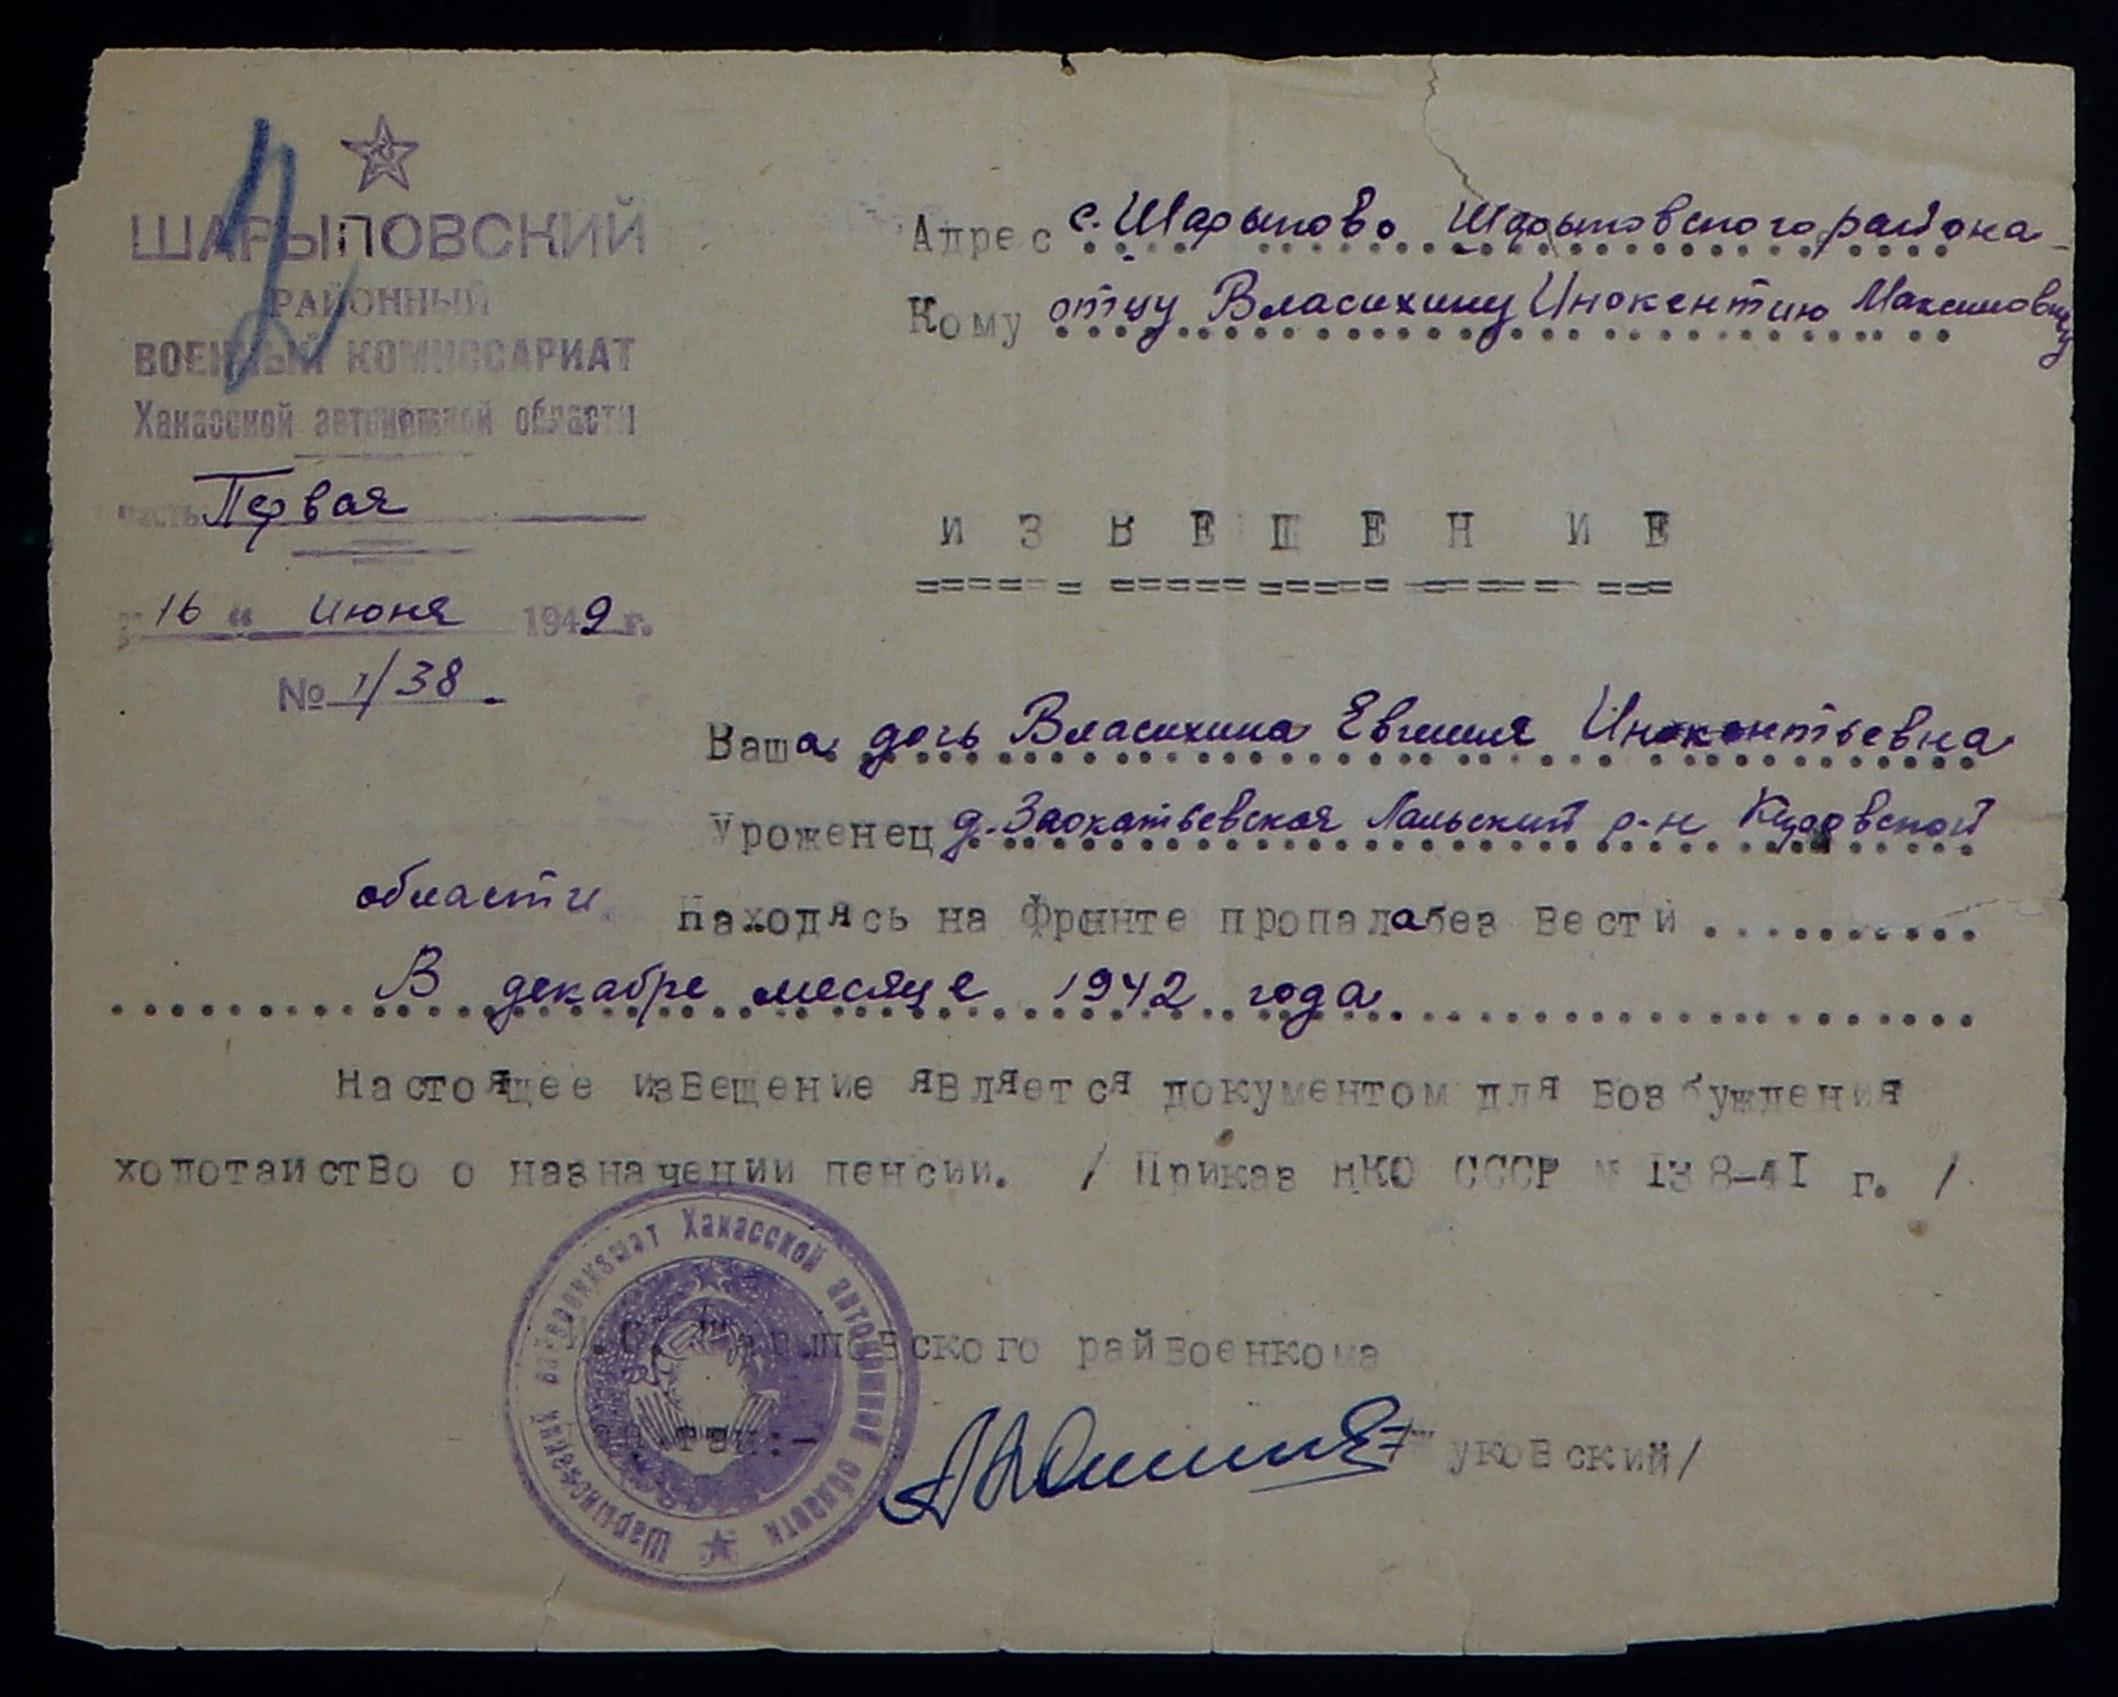 ШАРЫПОВСКИЙ
РАЙОННЫЙ
ВОЕННЫЙ КОМИССАРИАТ
Хакасской автономной области
часть Первая
16 " июня 1949 г.
№ 1/38.
Адрес с. Шарыпово Шарыповского района
Кому отцу Власихину Инокентию Максимовичу
ИЗВЕЩЕНИЕ
Ваша дочь Власихина Евгения Инокентьевна
Уроженец д. Лальский р-н Кировской
области Находясь на Фронте пропала без вести
В декабре месяце 1942 года
Настоящее извещение является документом для возбуждения
ходотайство о назначении пенсии. / Приказ НКО СССР № 138-41 г. /
Шарыповского райвоенкома
уковский/
Шарыповский райвоенкомат Хакасской автономной области